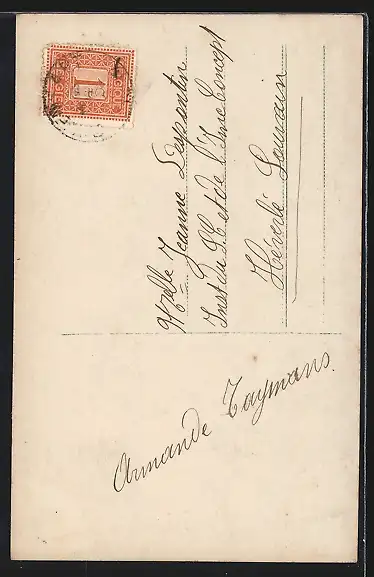 Mzelle Jeanne Desportin
Inst du S. C. et de l'Imm Concept
Héverlé Louvain
Armande Taymans.
1